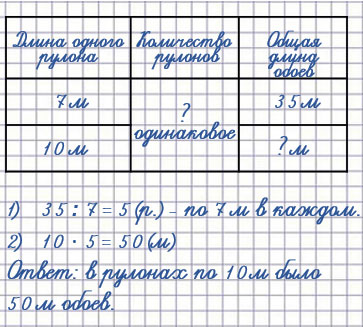 Длина одного рулона
Количество рулонов
Общая длунд обоев
7 м
?
одинаковое
35 м
10 м
? м
1) 35 : 7 = 5 (р.) - по 7 м в каждом.
2) 10 · 5 = 50 (м)
Ответ: в рулонах по 10 м было
50 м обоев.